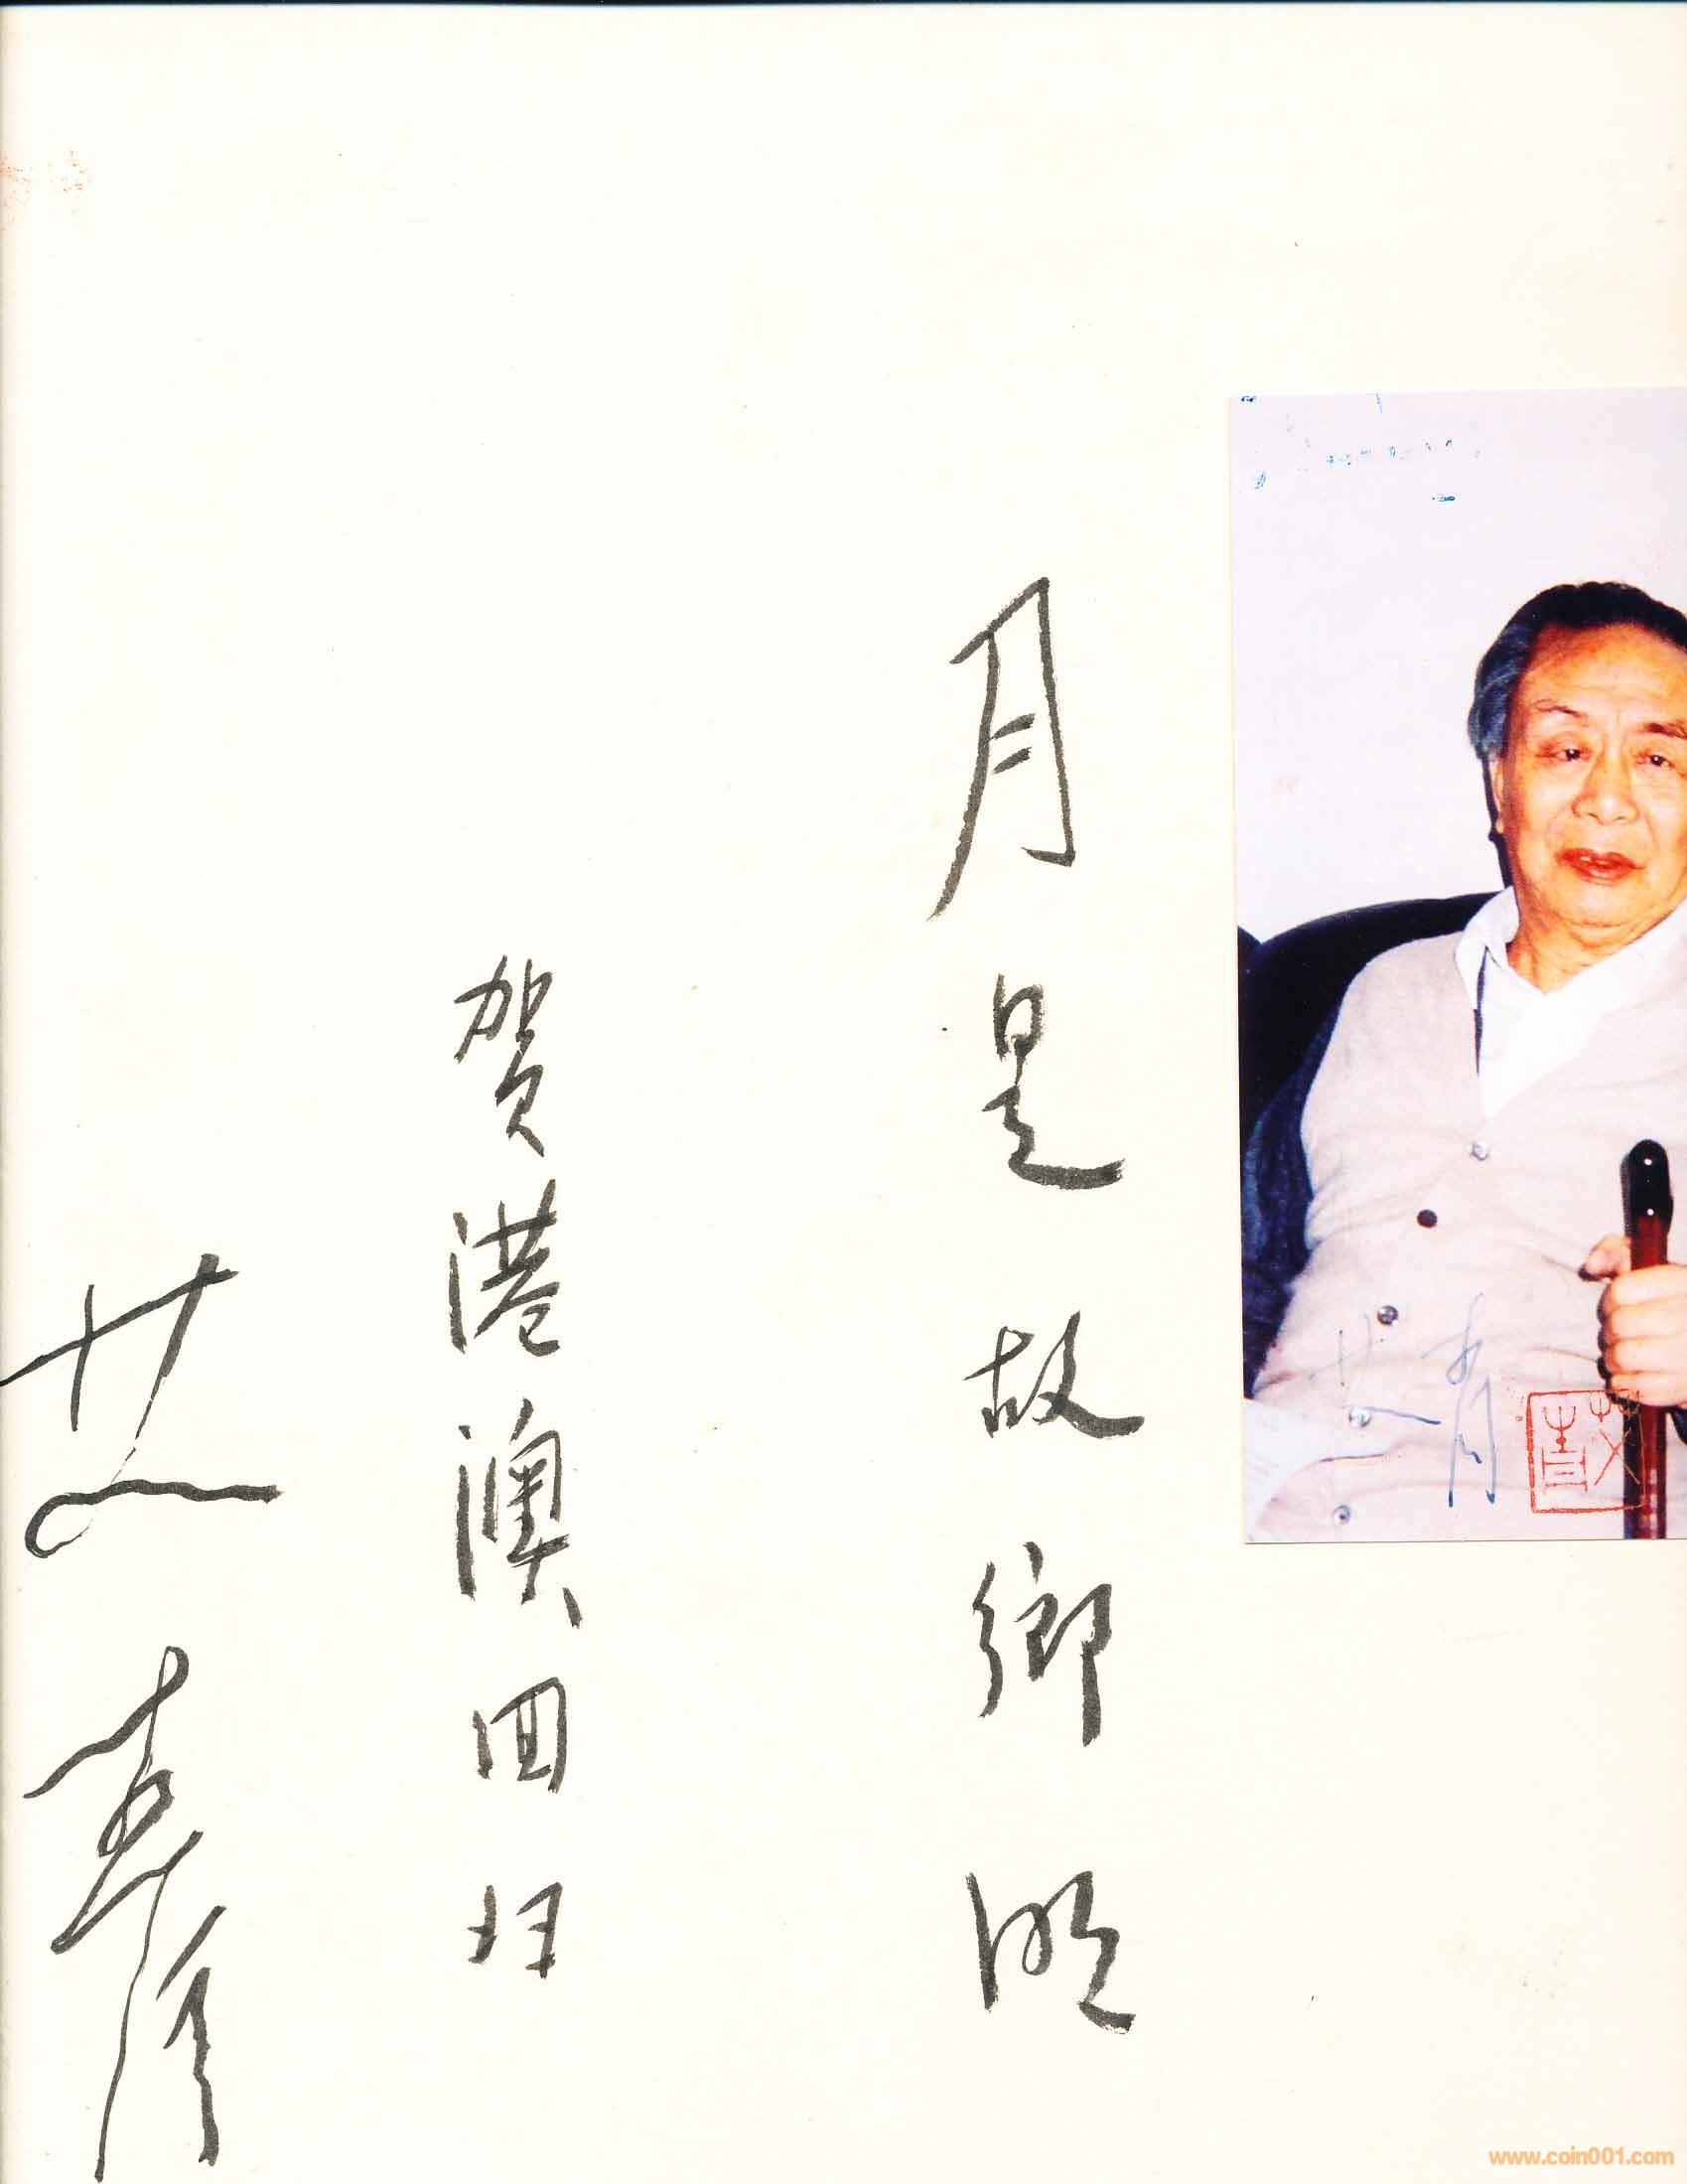 月是故鄉明
贺港澳回归
艾青
艾青
艾青
www.coin001.com